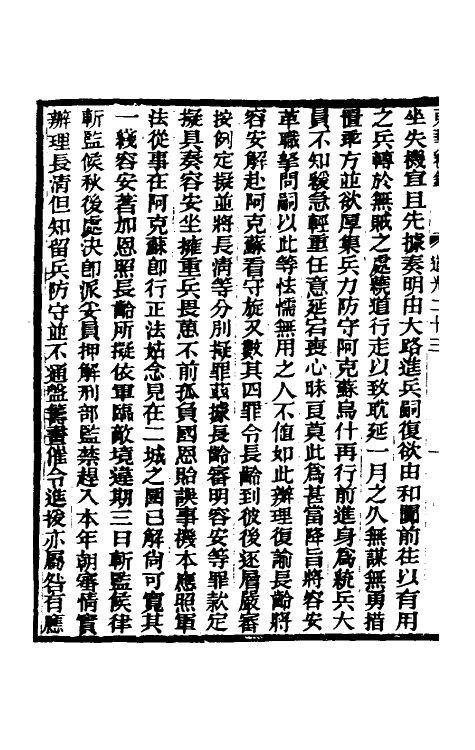 道光二十三
坐失機宜且先據奏明由大路進兵嗣復欲由和闐前往以有用
之兵轉於無賊之處繞道行走以致耽延一月之久無謀無勇措
置乖方並欲厚集兵力防守阿克蘇烏什再行前進身爲統兵大
員不知緩急輕重任意延宕喪心昧良莫此爲甚當降旨將容安
革職拏問嗣以此等怯懦無用之人不值如此辦理復諭長齡將
容安解赴阿克蘇看守旋又數其四罪令長齡到彼後逐層嚴審
按例定擬並將長淸等分別擬罪茲據長齡審明容安等罪款定
擬具奏容安坐擁重兵畏葸不前孤負國恩貽誤事機本應照軍
法從事在阿克蘇卽行正法姑念見在二城之圍已解尚可寬其
一綫容安著加恩照長齡所擬依軍臨敵境違期三日斬監候律
斬監候秋後處決卽派妥員押解刑部監禁趕入本年朝審情實
辦理長淸但知留兵防守並不通盤籌畫催令進援亦屬咎有應